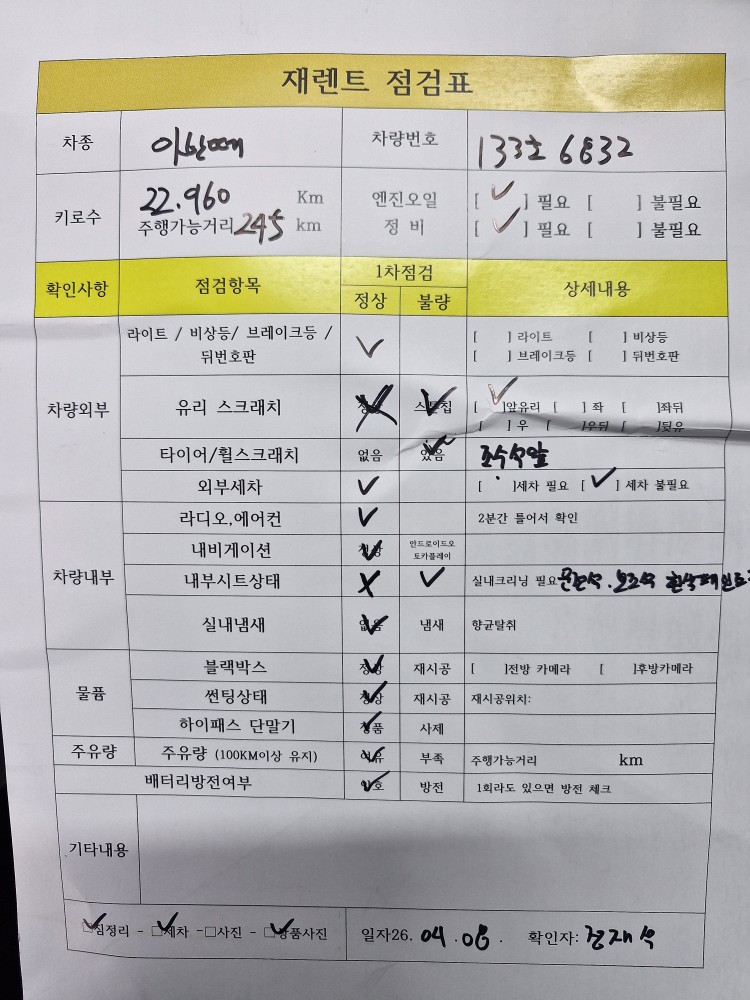 재렌트 점검표
차종 아반떼 차량번호 133호 6832
키로수 22.960 Km 엔진오일 [ ✓ ] 필요 [ ] 불필요
주행가능거리 245 km 정 비 [ ✓ ] 필요 [ ] 불필요
확인사항 점검항목 1차점검 상세내용
정상 불량
차량외부
라이트 / 비상등/ 브레이크등 / 뒤번호판 ✓ [ ] 라이트 [ ] 비상등
[ ] 브레이크등 [ ] 뒤번호판
유리 스크래치 정상 스톤칩 ✓ [ ✓ ]앞유리 [ ] 좌 [ ]좌뒤
[ ] 우 [ ]우뒤 [ ]뒷유
타이어/휠스크래치 없음 있음 ✓ 조수석앞
외부세차 ✓ [ ]세차 필요 [ ✓ ] 세차 불필요
차량내부
라디오,에어컨 ✓ 2분간 틀어서 확인
내비게이션 정상 ✓ 안드로이드오토카플레이
내부시트상태 X ✓ 실내크리닝 필요 운전석. 보조석 흰색페인트
실내냄새 없음 ✓ 냄새 향균탈취
물품
블랙박스 정상 ✓ 재시공 [ ]전방 카메라 [ ]후방카메라
썬팅상태 정상 ✓ 재시공 재시공위치:
하이패스 단말기 정품 ✓ 사제
주유량 주유량 (100KM이상 유지) 여유 ✓ 부족 주행가능거리 km
배터리방전여부 양호 ✓ 방전 1회라도 있으면 방전 체크
기타내용
✓짐정리 - ✓세차 - □사진 - ✓용품사진 일자26. 04 . 08 . 확인자: 정재식